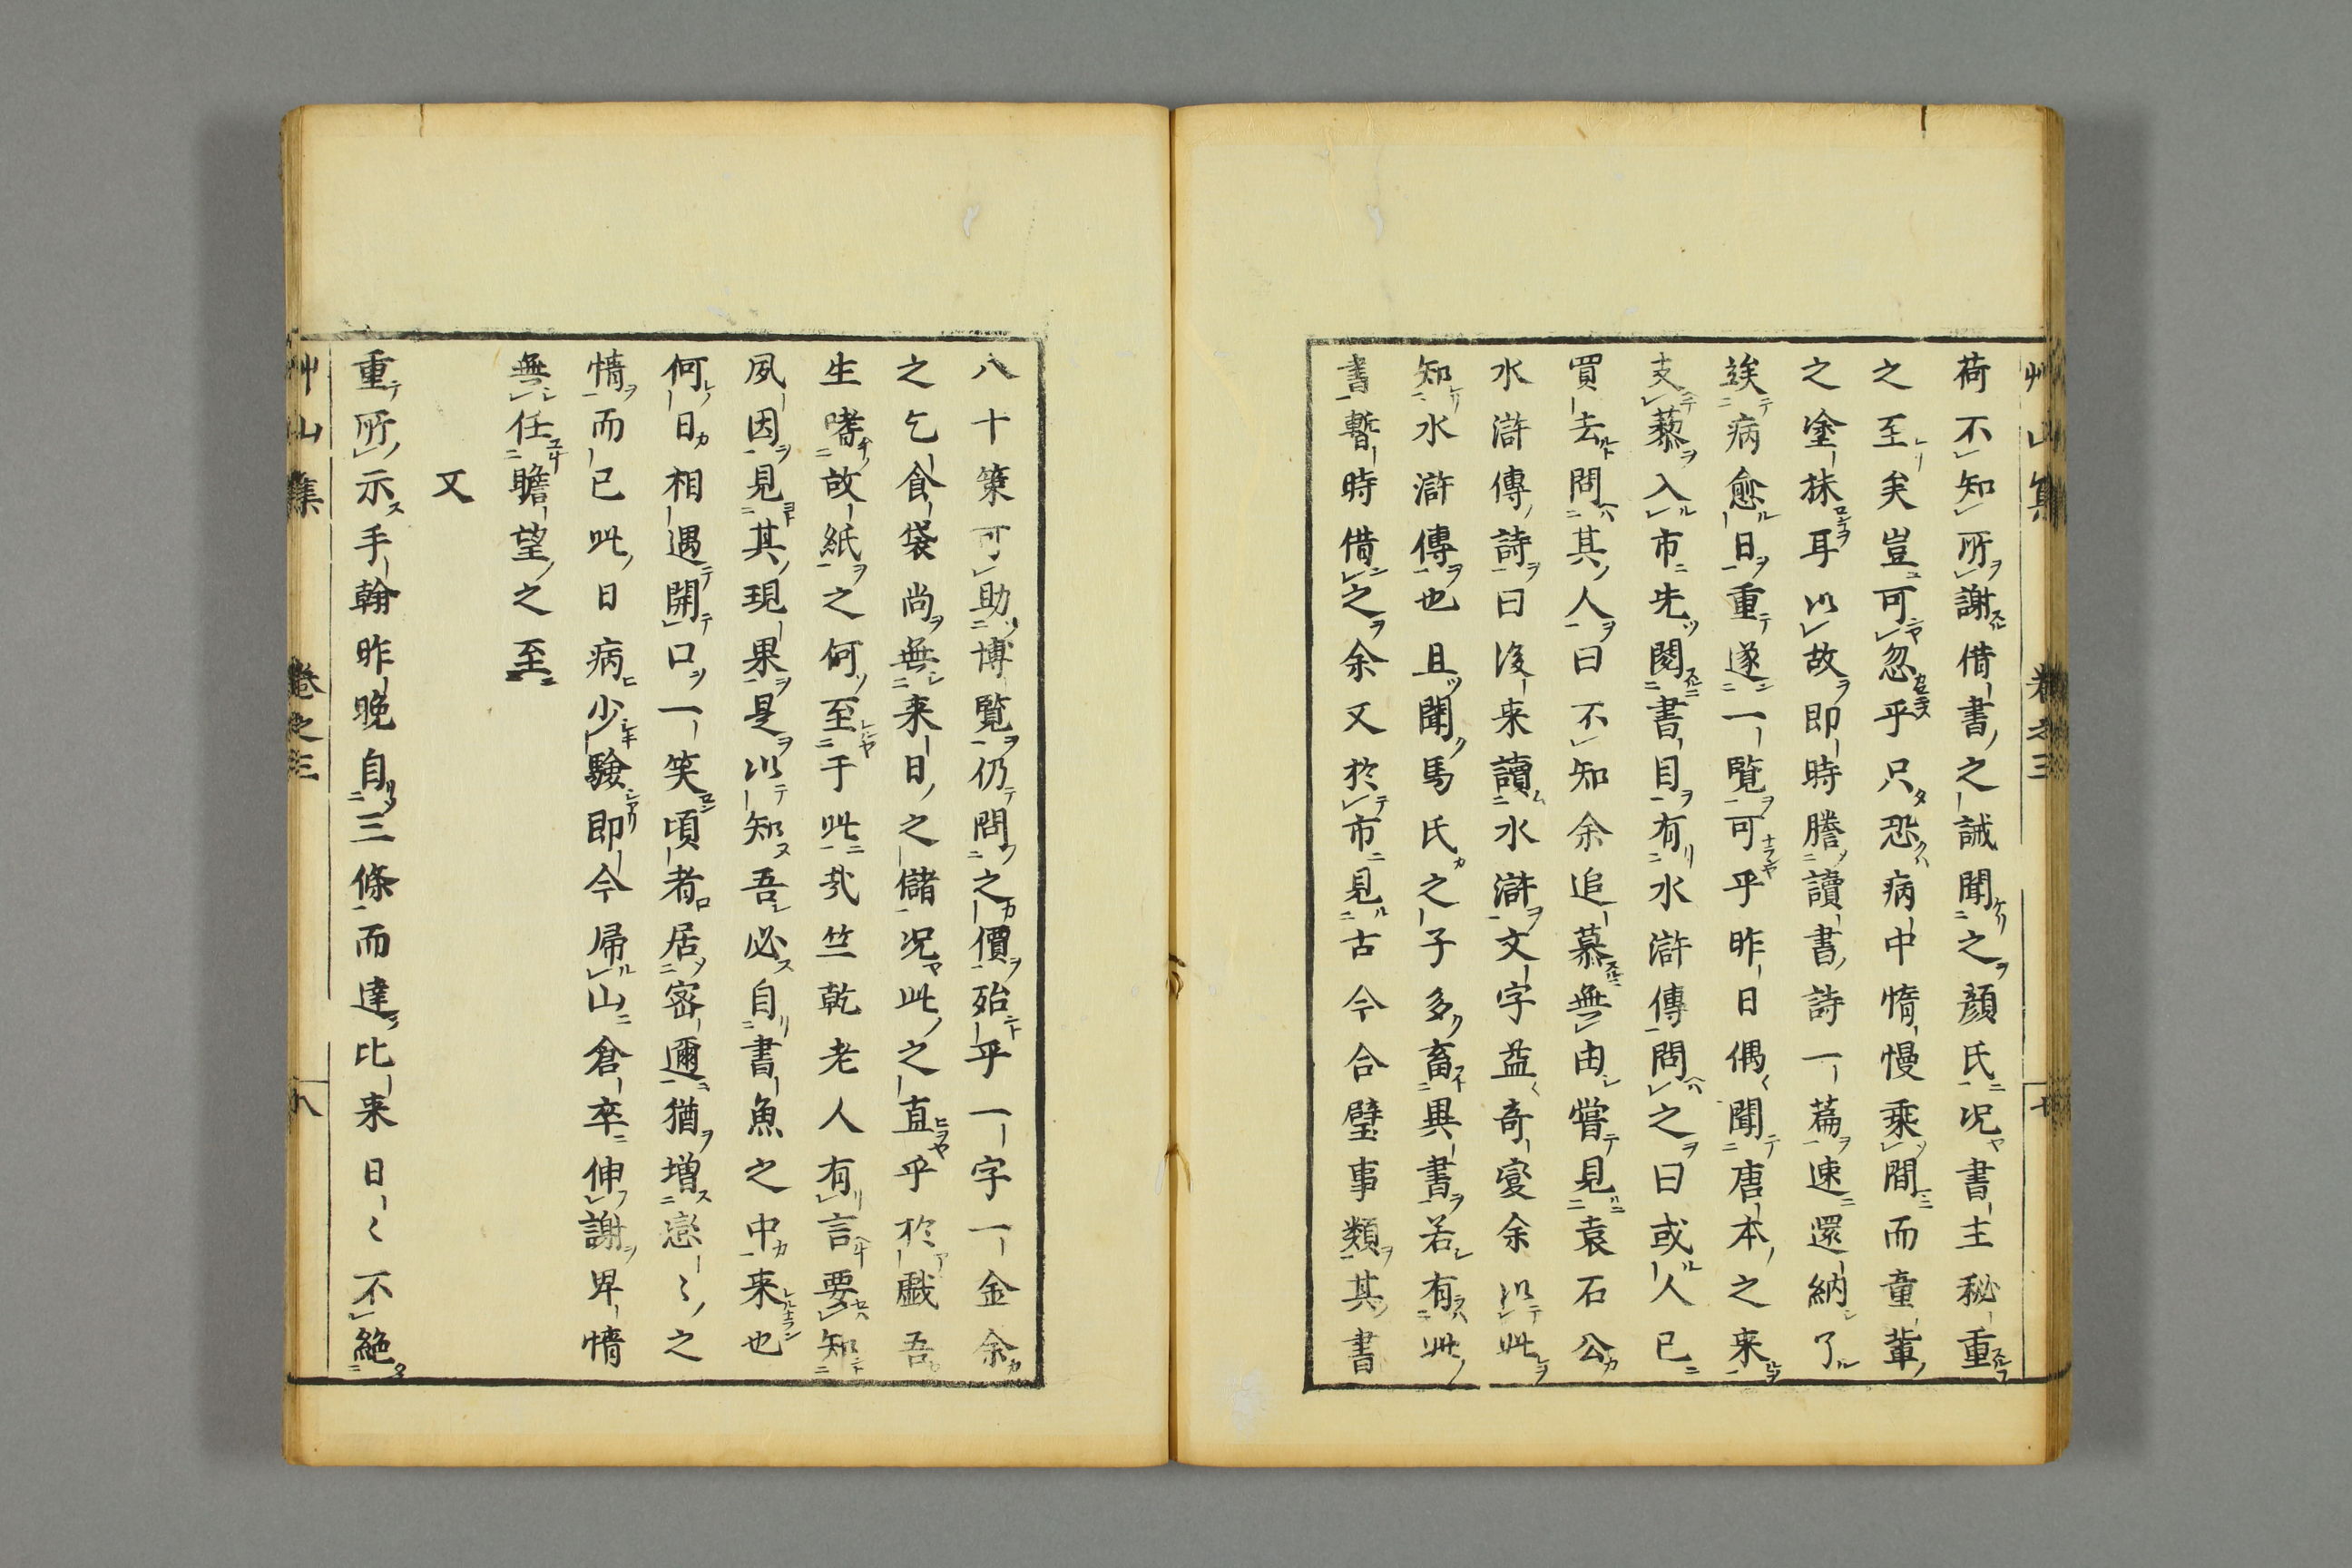 艸山集 卷之三
荷不知所謝借書之誡聞之顔氏况書主秘重
之至矣豈可忽乎只恐病中惰慢乘間而童輩
之塗抹耳以故即時謄讀書詩一篇速還納了
竢病愈日重遂一覧可乎昨日偶聞唐本之来
支藜入市先閱書目有水滸傳問之曰或人已
買去問其人曰不知余追慕無由嘗見袁石公
水滸傳詩曰後来讀水滸文字益奇變余以此
知水滸傳也且聞馬氏之子多畜異書若有此
書暫時借之余又於市見古今合璧事類其書
八十策可助博覧仍問之價殆乎一字一金余
之乞食袋尚無来日之儲况此之直乎於戲吾
生嗜故紙之何至于此哉竺乾老人有言要知
夙因見其現果是以知吾必自書魚之中来也
何日相遇開口一笑頃者居密邇猶增戀〻之
情而已此日病少驗即今帰山倉卒伸謝卑情
無任瞻望之至
又
重所示手翰昨晚自三條而達比来日〻不絶
艸山集 卷之三 八